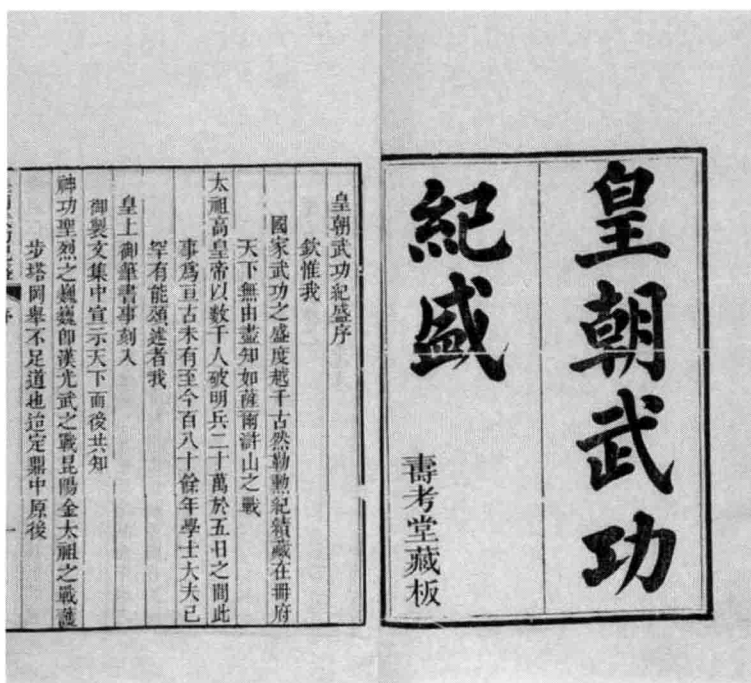 皇朝武功
紀盛
壽考堂藏板
皇朝武功紀盛序
欽惟我
國家武功之盛度越千古然勒勲紀績藏在冊府
天下無由盡知如薩爾滸山之戰
太祖高皇帝以數千人破明兵二十萬於五日之間此
事爲亘古未有至今百八十餘年學士大夫已
罕有能頌述者我
皇上御筆書事刻入
御製文集中宣示天下而後共知
神功聖烈之巍巍卽漢光武之戰昆陽金太祖之戰護
步塔岡舉不足道也迨定鼎中原後
一